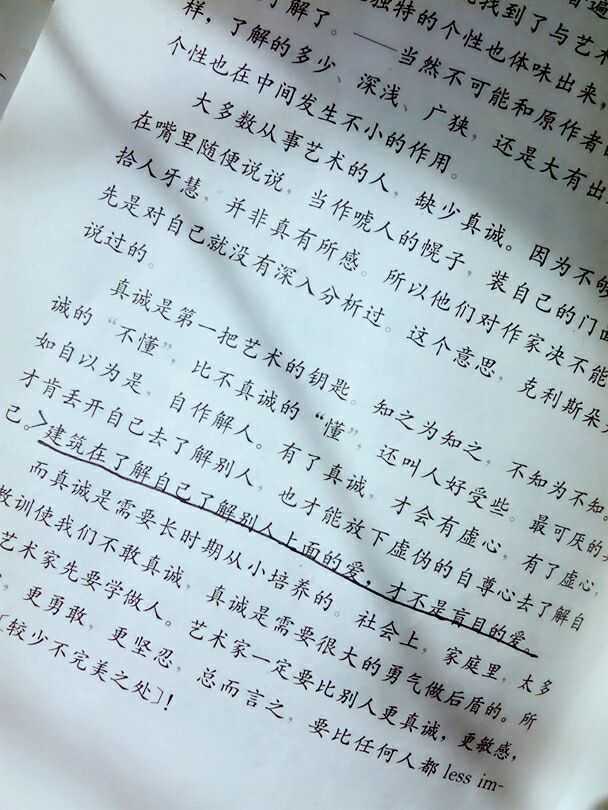 找到了与艺术
独特的个性也体味出来,
了解了。——当然不可能和原作者
样,了解的多少、深浅、广狭,还是大有出
个性也在中间发生不小的作用。
大多数从事艺术的人,缺少真诚。因为不够
在嘴里随便说说,当作唬人的幌子,装自己的门面
拾人牙慧,并非真有所感。所以他们对作家决不能
先是对自己就没有深入分析过。这个意思,克利斯朵
说过的。
真诚是第一把艺术的钥匙。知之为知之,不知为不知
诚的“不懂”,比不真诚的“懂”,还叫人好受些。最可厌的
如自以为是,自作解人。有了真诚,才会有虚心,有了虚心,
才肯丢开自己去了解别人,也才能放下虚伪的自尊心去了解自
己。建筑在了解自己了解别人上面的爱,才不是盲目的爱。
而真诚是需要长时期从小培养的。社会上,家庭里,太多
教训使我们不敢真诚,真诚是需要很大的勇气做后盾的。所
艺术家先要学做人。艺术家一定要比别人更真诚,更敏感,
更勇敢,更坚忍,总而言之,要比任何人都 less im-
〔较少不完美之处〕!